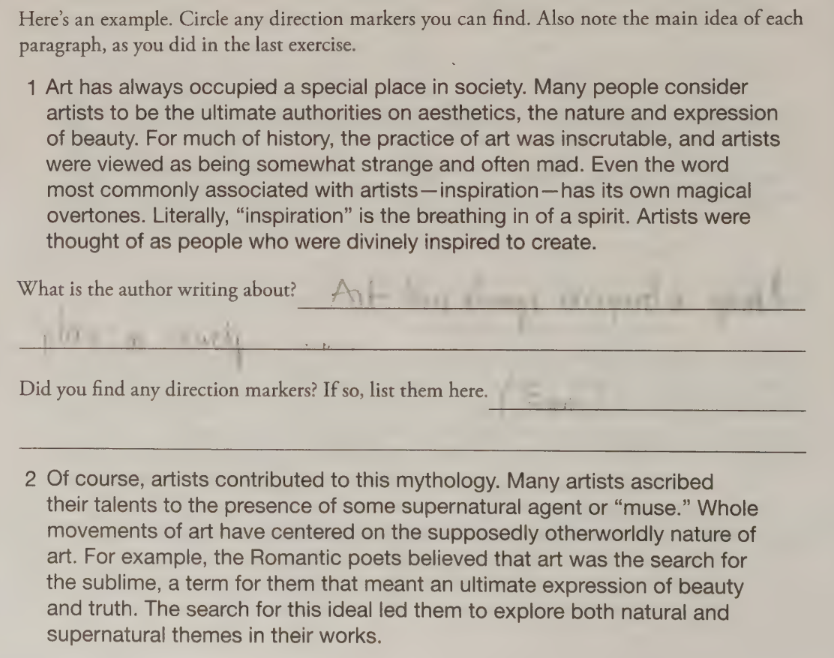 Here's an example. Circle any direction markers you can find. Also note the main idea of each
paragraph, as you did in the last exercise.
1 Art has always occupied a special place in society. Many people consider
artists to be the ultimate authorities on aesthetics, the nature and expression
of beauty. For much of history, the practice of art was inscrutable, and artists
were viewed as being somewhat strange and often mad. Even the word
most commonly associated with artists—inspiration—has its own magical
overtones. Literally, “inspiration” is the breathing in of a spirit. Artists were
thought of as people who were divinely inspired to create.
What is the author writing about? Art
Did you find any direction markers? If so, list them here.
2 Of course, artists contributed to this mythology. Many artists ascribed
their talents to the presence of some supernatural agent or “muse.” Whole
movements of art have centered on the supposedly otherworldly nature of
art. For example, the Romantic poets believed that art was the search for
the sublime, a term for them that meant an ultimate expression of beauty
and truth. The search for this ideal led them to explore both natural and
supernatural themes in their works.